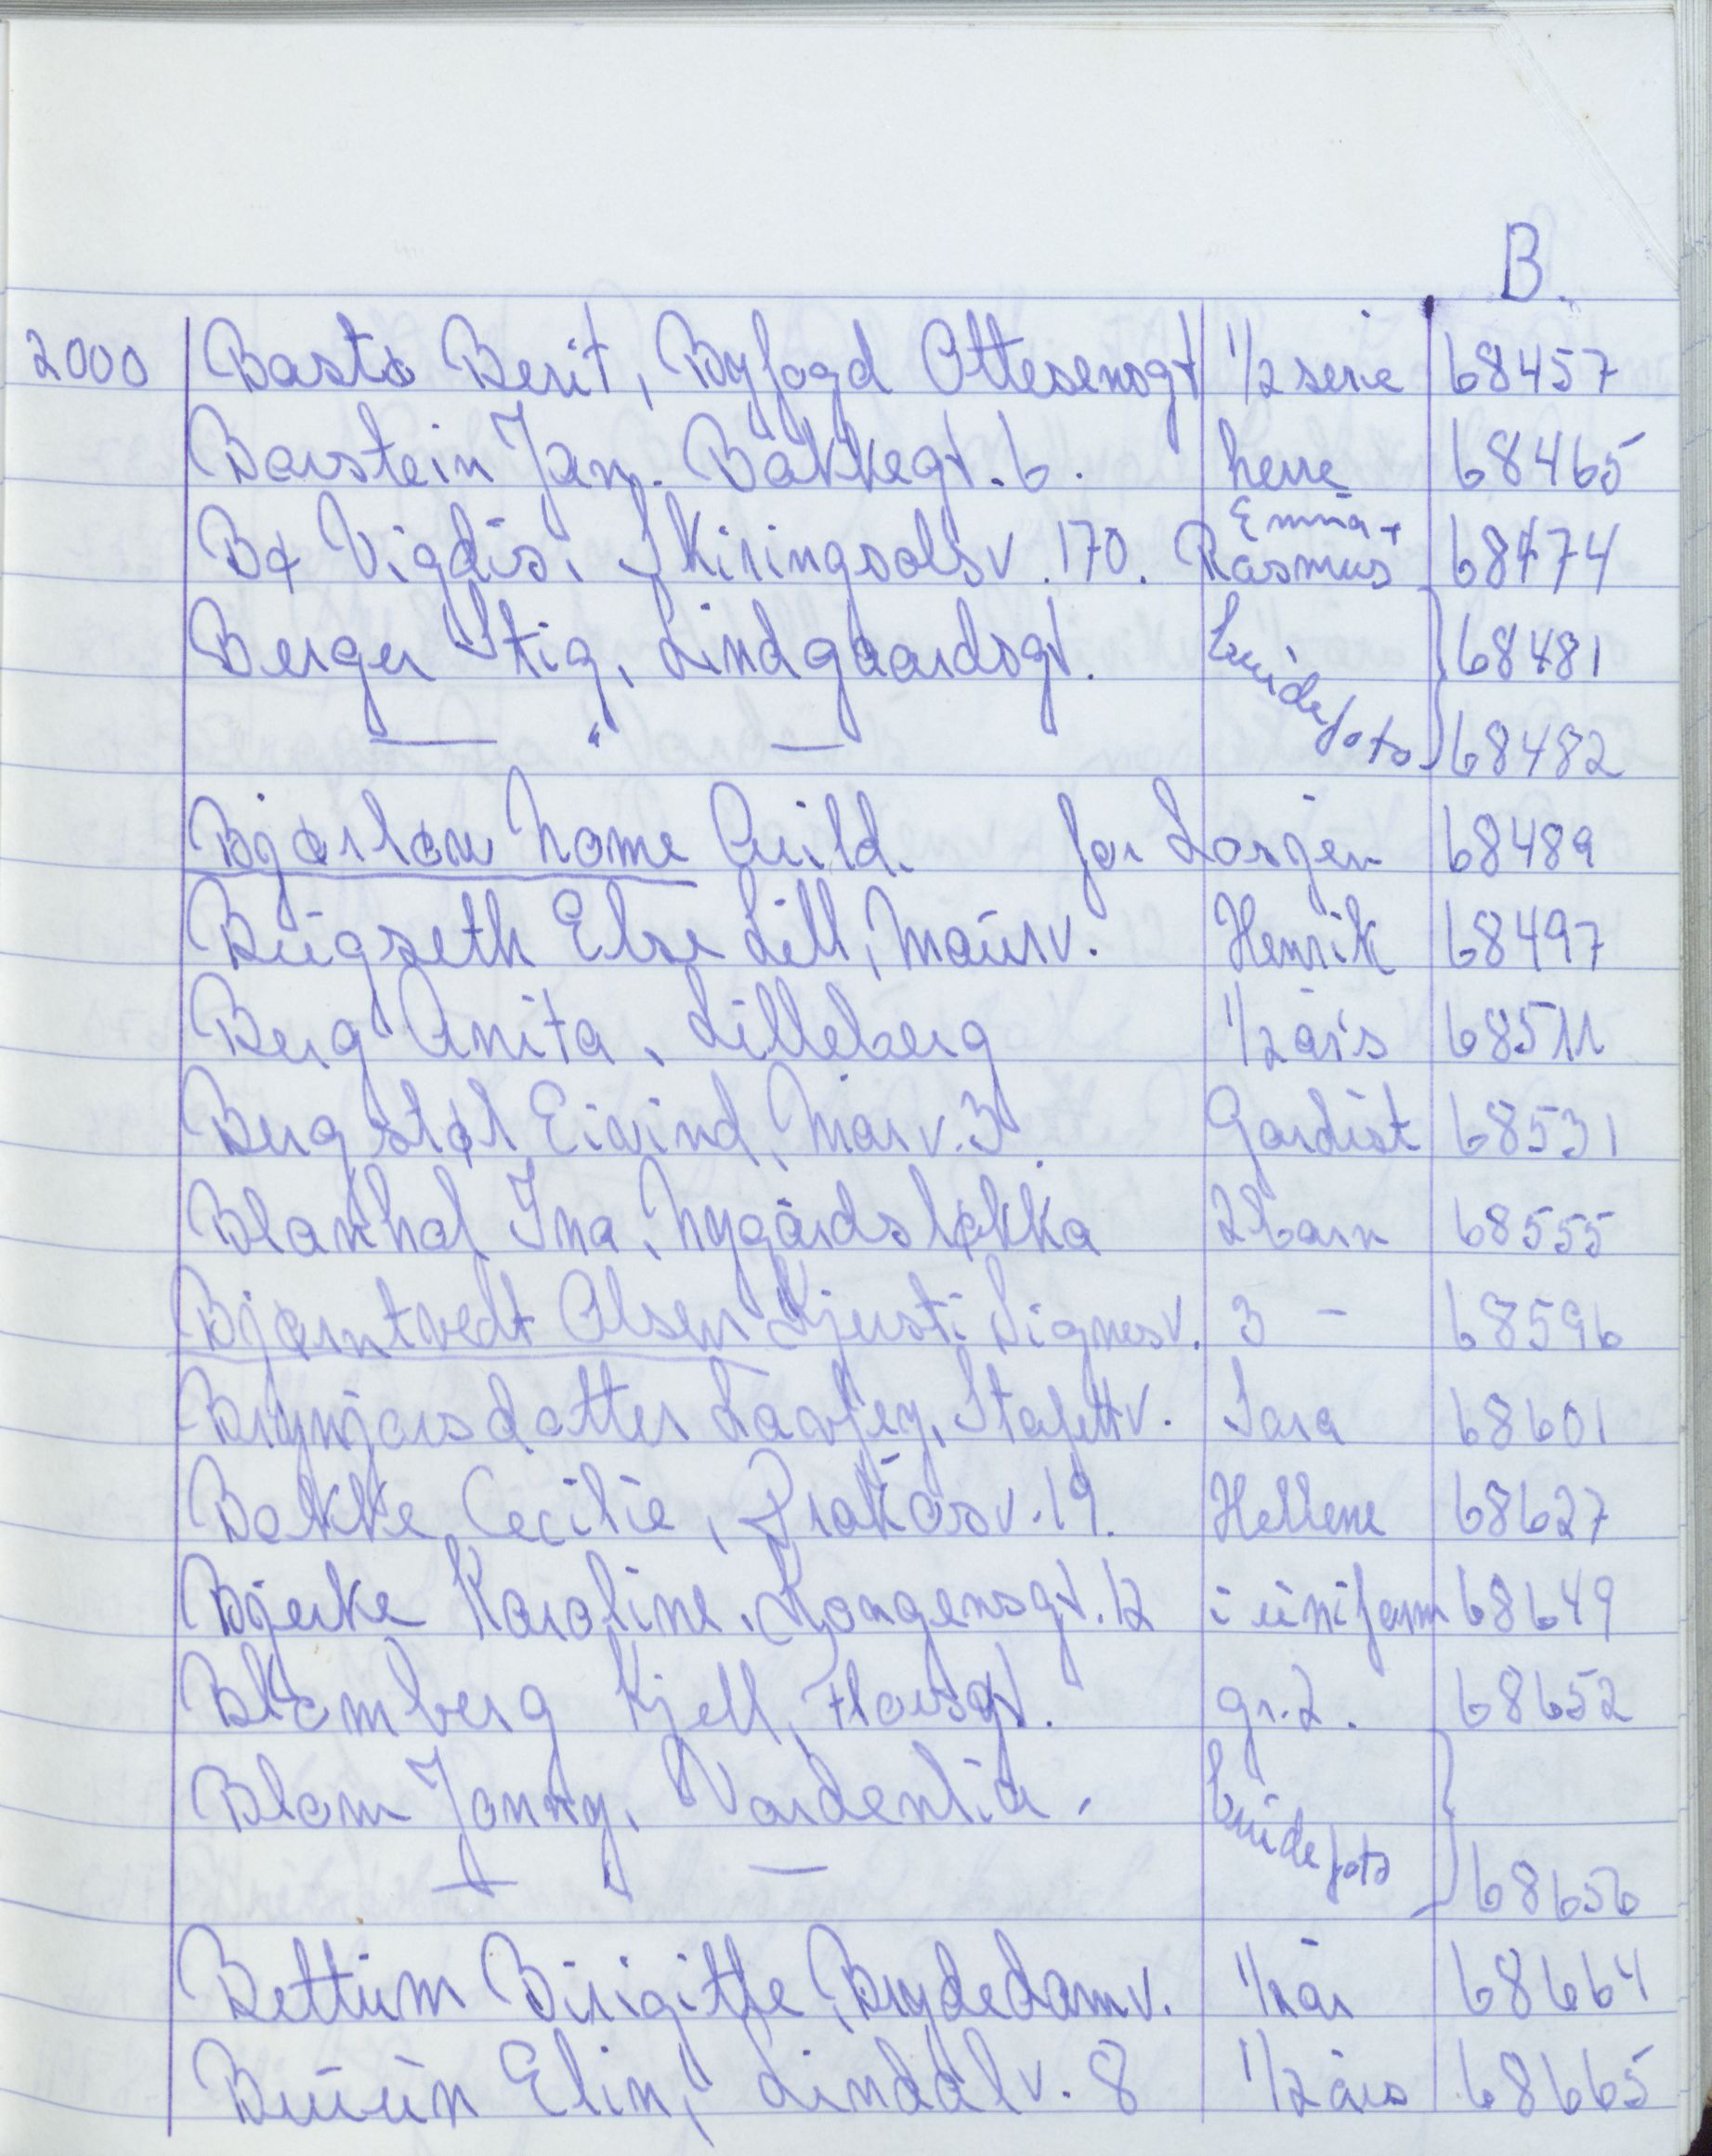 B.
2000 Bastø Berit, Byfogd Ottesensgt 1/2 serie 68457
Barstein Jan. Bakkegt. 6. herre 68465
Bø Vigdis, Skiringsalsv. 170. Emma + Rasmus 68474
Berger Stig, Lindgaardsgt. brudefoto 68481
— " — 68482
Bjørløw Name Guild. for Lorjen 68489
Bugseth Else Lill, Maurv. Henrik 68497
Berg Anita, Lilleberg 1/2 års 68511
Bergstøl Eivind, Mårv. 3. Gardist 68531
Blankhol Ina, Nygårdsløkka 2 barn 68555
Bjørntvedt Olsen Kjersti Signesv. 3 — 68596
Brynjarsdatter Laufey, Stafettv. Sara 68601
Bakke, Cecilie, Bratåsv. 19. Hellene 68627
Bjerke Karoline, Kongensgt. 12 i uniform 68649
Blomberg Kjell, Thorsgt. gr. 2. 68652
Blom Jonny, Vardenlia, brudefoto
— " — 68656
Bettum Birigitte, Brydedamv. 1/2 år 68664
Bruun Elin, Lindalv. 8 1/2 års 68665